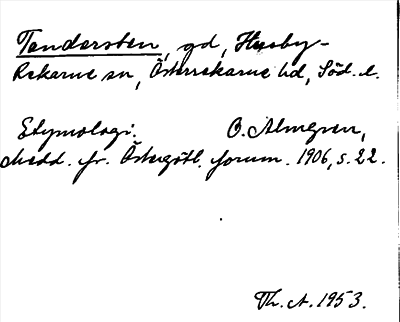 Tandersten, gd, Husby-
Rekarne sn, Österrekarne hd, Söd. l.
Etymologi. O. Almgren,
Medd. fr. Östergötl. fornm. 1906, s. 22.
Th. A. 1953.